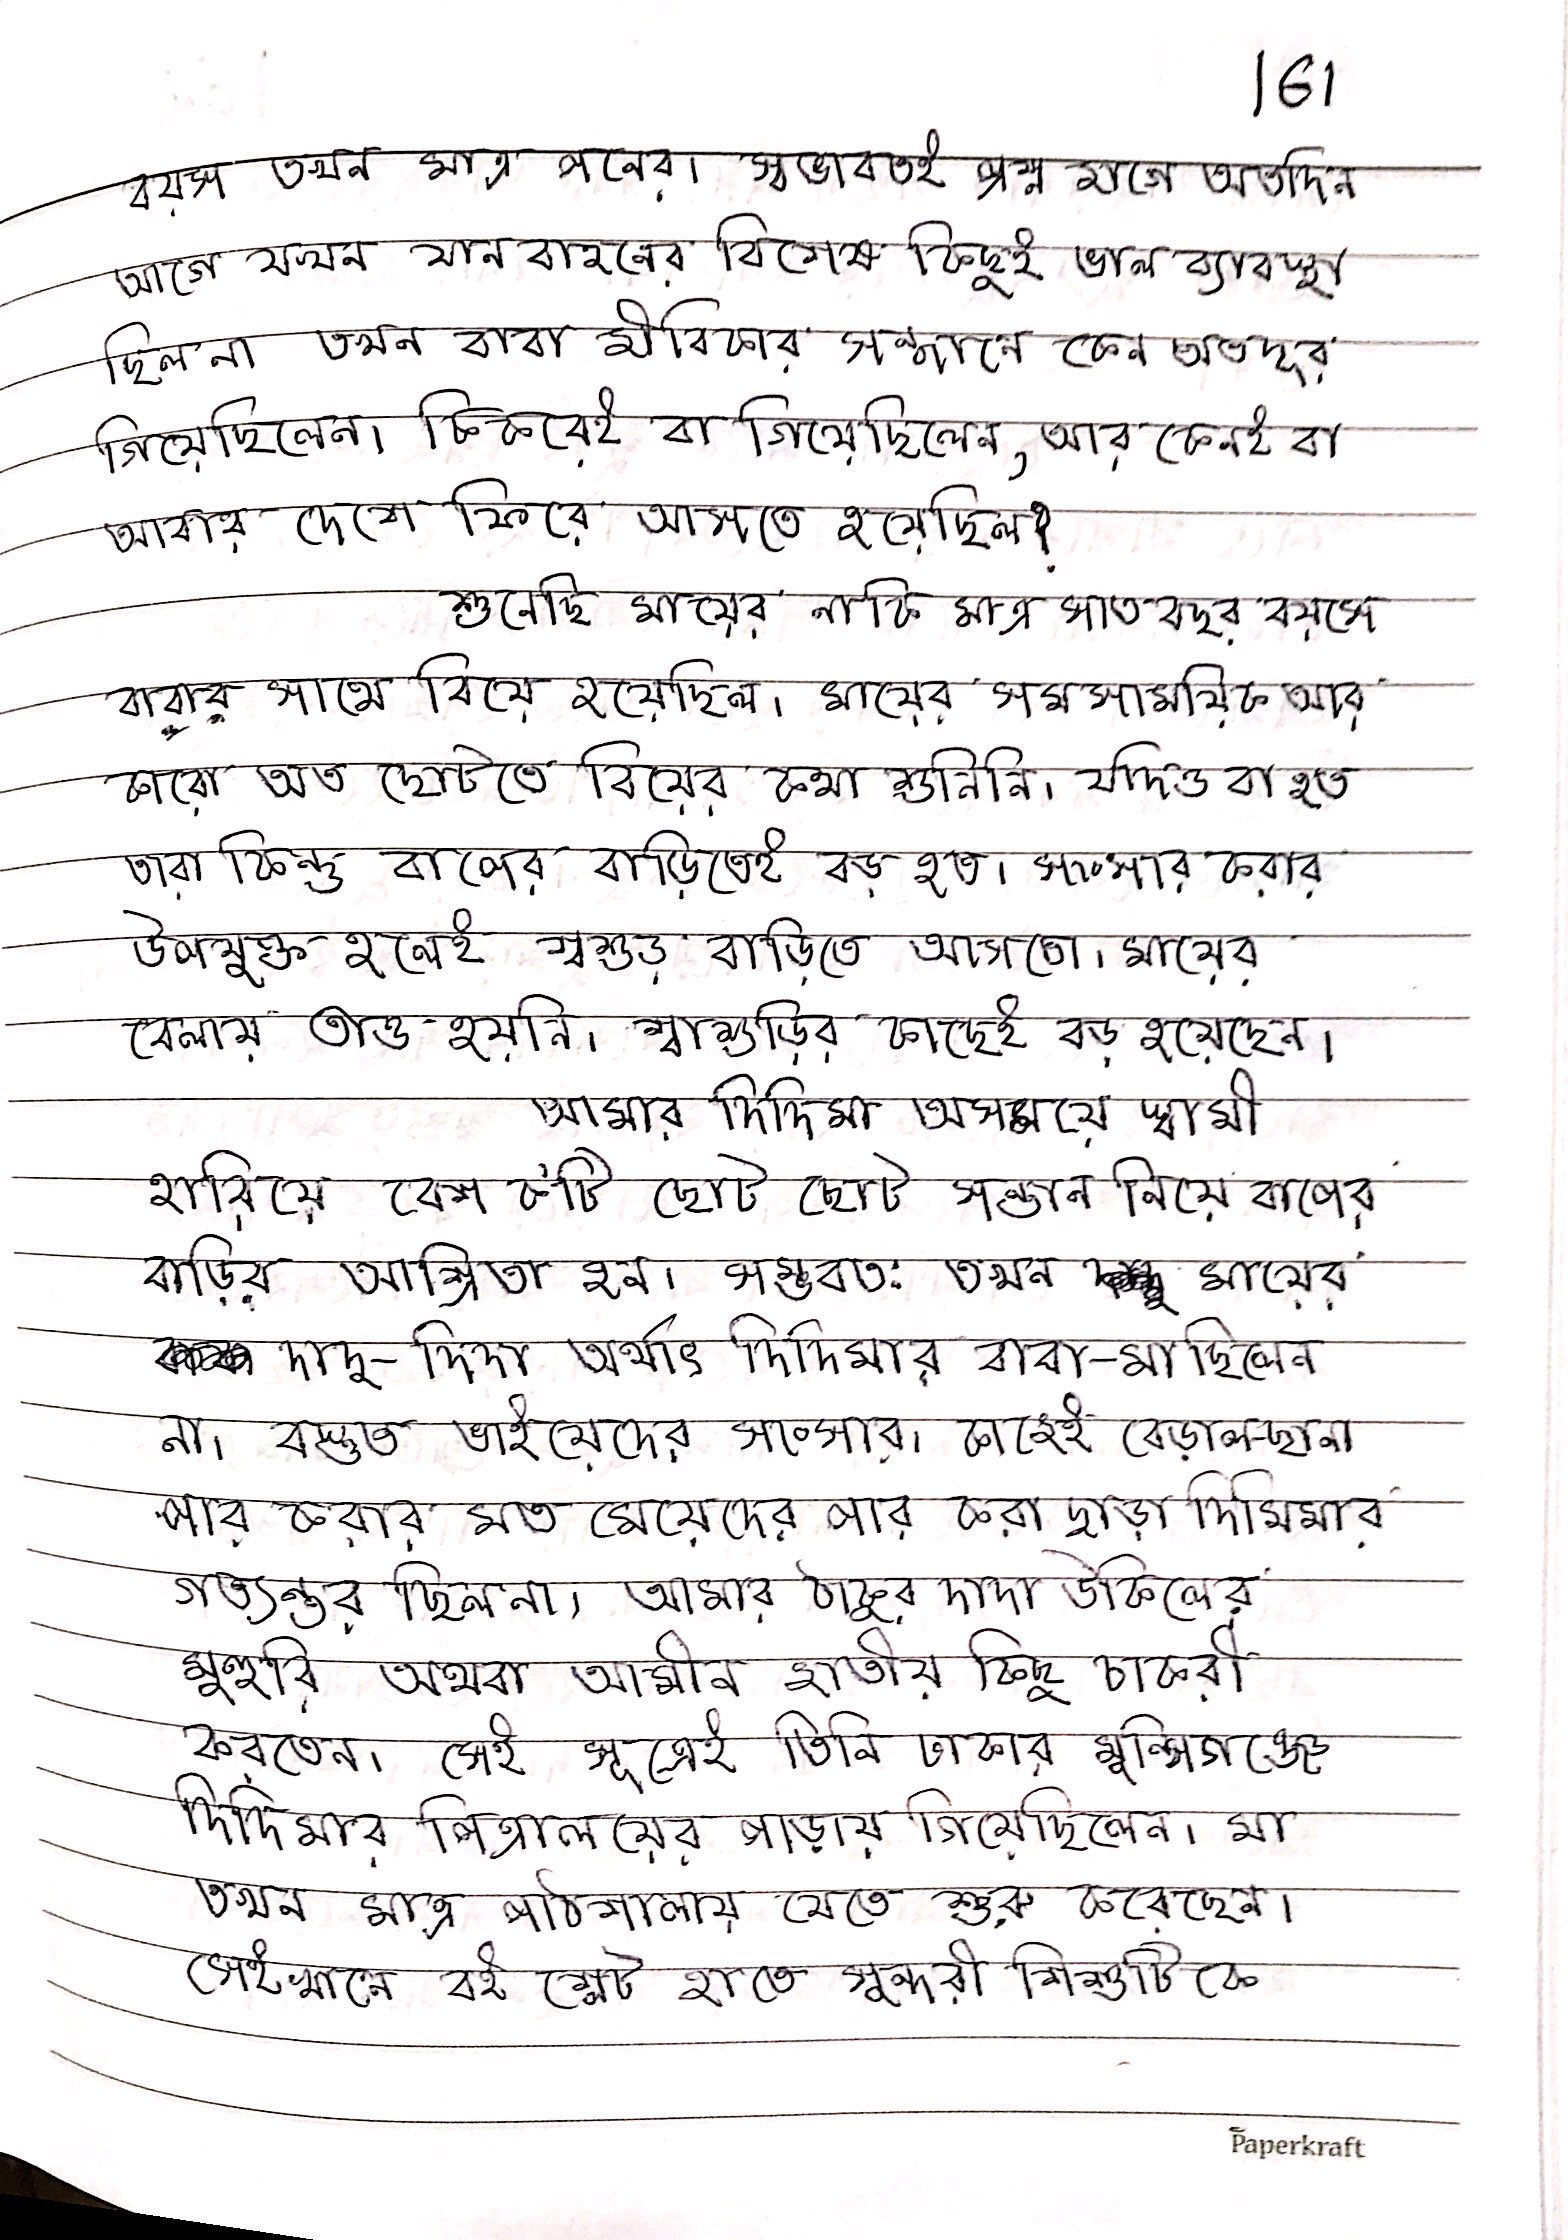 161
বয়স তখন মাত্র পনের। স্বভাবতই প্রশ্ন জাগে অতদিন
আগে যখন যানবাহনের বিশেষ কিছুই ভাল ব্যাবস্থা
ছিলনা তখন বাবা জীবিকার সন্ধানে কেন অতদূর
গিয়েছিলেন। কি করেই বা গিয়েছিলেন, আর কেনই বা
আবার দেশে ফিরে আসতে হয়েছিল?
শুনেছি মায়ের নাকি মাত্র সাত বছর বয়সে
বাবার সাথে বিয়ে হয়েছিল। মায়ের সমসাময়িক আর
কারো অত ছোটতে বিয়ের কথা শুনিনি। যদিও বা হত
তারা কিন্তু বাপের বাড়িতেই বড় হত। সংসার করার
উপযুক্ত হলেই শ্বশুড় বাড়িতে আসতো। মায়ের
বেলায় তাও হয়নি। শ্বাশুড়ির কাছেই বড় হয়েছেন।
আমার দিদিমা অসময়ে স্বামী
হারিয়ে বেশ ক'টি ছোট ছোট সন্তান নিয়ে বাপের
বাড়ির আশ্রিতা হন। সম্ভবতঃ তখন মায়ের
দাদু-দিদা অর্থাৎ দিদিমার বাবা-মা ছিলেন
না। বস্তুত ভাইয়েদের সংসার। কাজেই বেড়াল-ছানা
পার করার মত মেয়েদের পার করা ছাড়া দিদিমার
গত্যন্তর ছিলনা। আমার ঠাকুর দাদা উকিলের
মুহুরি অথবা আমীন জাতীয় কিছু চাকরী
করতেন। সেই সূত্রেই তিনি ঢাকার মুন্সিগঞ্জে
দিদিমার পিত্রালয়ের পাড়ায় গিয়েছিলেন। মা
তখন মাত্র পাঠশালায় যেতে শুরু করেছেন।
সেইখানে বই স্লেট হাতে সুন্দরী শিশুটি কে
Paperkraft